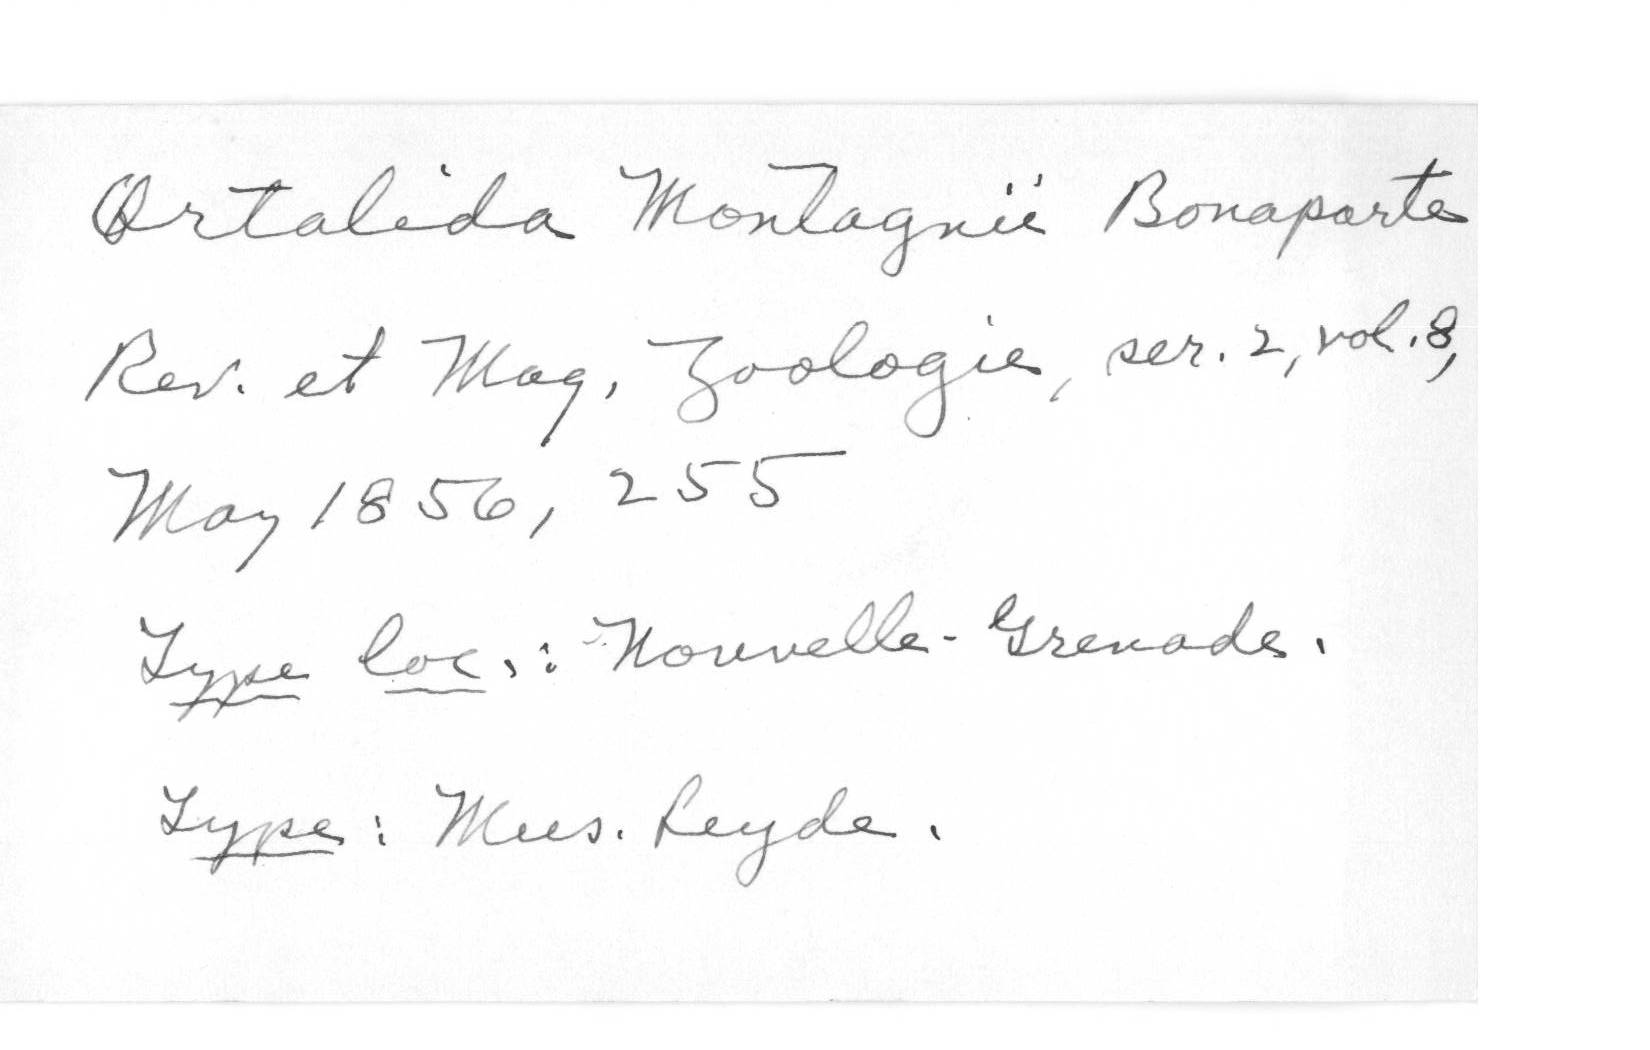 Ortalida Montagnii Bonaparte
Rev. et Mag. Zoologie, ser. 2, vol. 8,
May 1856, 255
Type loc.: Nouvelle-Grenade.
Type: Mus. Leyde.